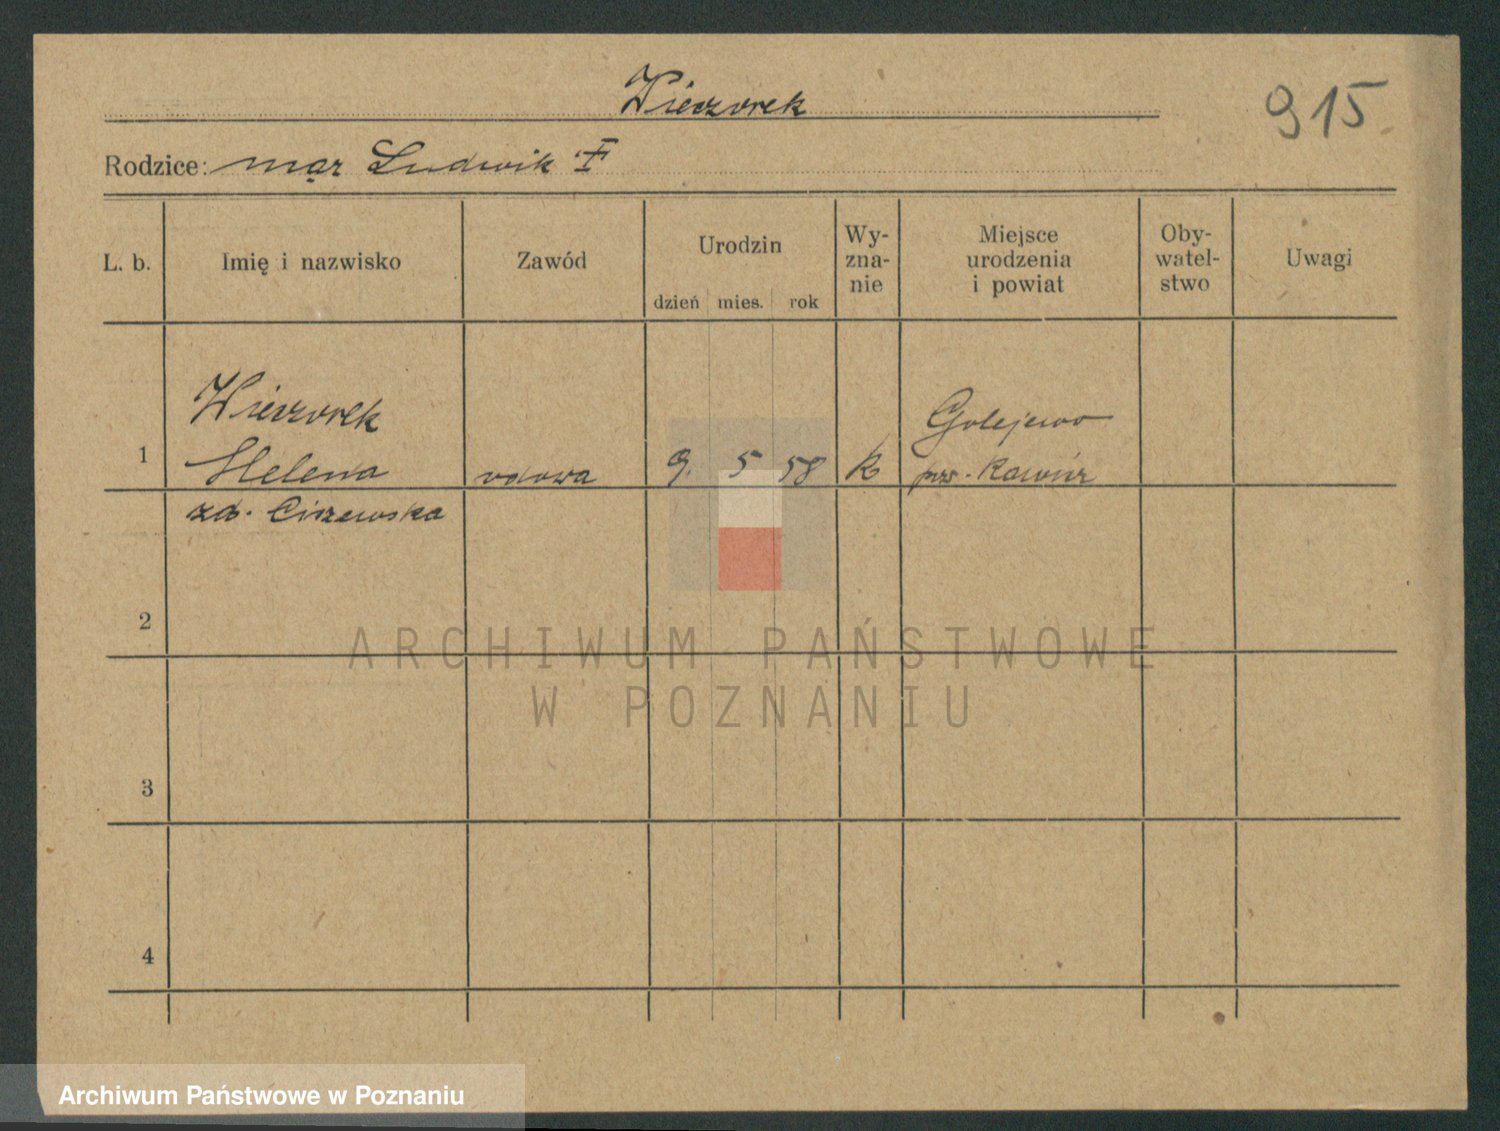 Wieczorek
915
Rodzice: mąż Ludwik
L. b.
Imię i nazwisko
Zawód
Urodzin
dzień mies. rok
Wy-
zna-
nie
Miejsce
urodzenia
i powiat
Oby-
watel-
stwo
Uwagi
1
Wieczorek
Helena
zd. Ciszewska
wdowa
9. 5 58
k
Golejewo
pow. Rawicz
2
3
4
ARCHIWUM PAŃSTWOWE
W POZNANIU
Archiwum Państwowe w Poznaniu